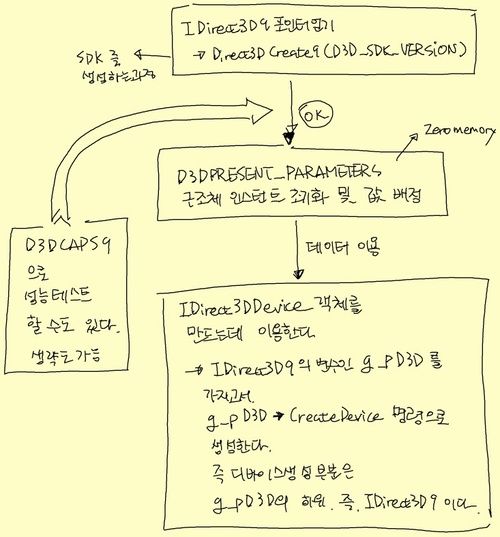 IDirect3D9 포인터얻기
→ Direct3DCreate9(D3D_SDK_VERSION)
SDK 를
생성하는과정
OK
Zeromemory
D3DPRESENT_PARAMETERS
구조체 인스턴트 초기화 및 값 배정
D3DCAPS9
으로
성능테스트
할 수도 있다.
생략도가능
데이터 이용
IDirect3DDevice 객체를
만드는데 이용한다.
→ IDirect3D9 의 변수인 g_pD3D 를
가지고서.
g_pD3D → CreateDevice 명령으로
생성한다.
즉 디바이스생성부분은
g_pD3D의 하위. 즉. IDirect3D9 이다.